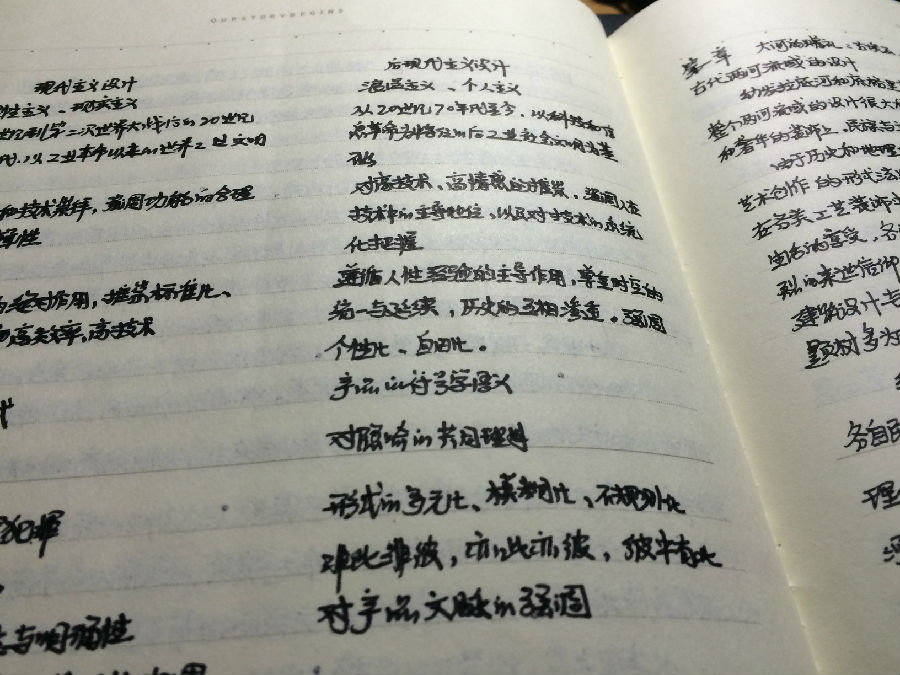 OURSTORYBEGINS
现代主义设计
性主义、现实主义
世纪到第二次世界大战后的20世纪
代,以工业革命以来的世界工业文明
和技术崇拜,强调功能的合理
辑性
的绝对作用,推崇标准化、
高效率,高技术
计
犯罪
与明确性
后现代主义设计
浪漫主义、个人主义
从20世纪70年代至今,以科技和信
息革命为特征的后工业社会文明为基
础
对高技术、高情感的推崇,强调人在
技术中的主导地位,以及对技术的系统
化把握
遵循人性经验的主导作用,尊重时空的
统一与延续,历史的互相渗透。强调
个性化、自由化。
产品的符号学语义
对服务的共同理
形式的多元化、模糊化、不规则化
非此非彼,亦此亦彼,彼中有此
对产品文脉的强调
第一章 大河的
古代两河流域的设计
幼发拉底河和底格里
整个两河流域的设计很大
和奢华的装饰上,民族与
由于历史和地理
艺术创作的形式
在各类工艺装饰
生活的享受,各
烈的来世信仰
建筑设计与
题材多为
各自
理